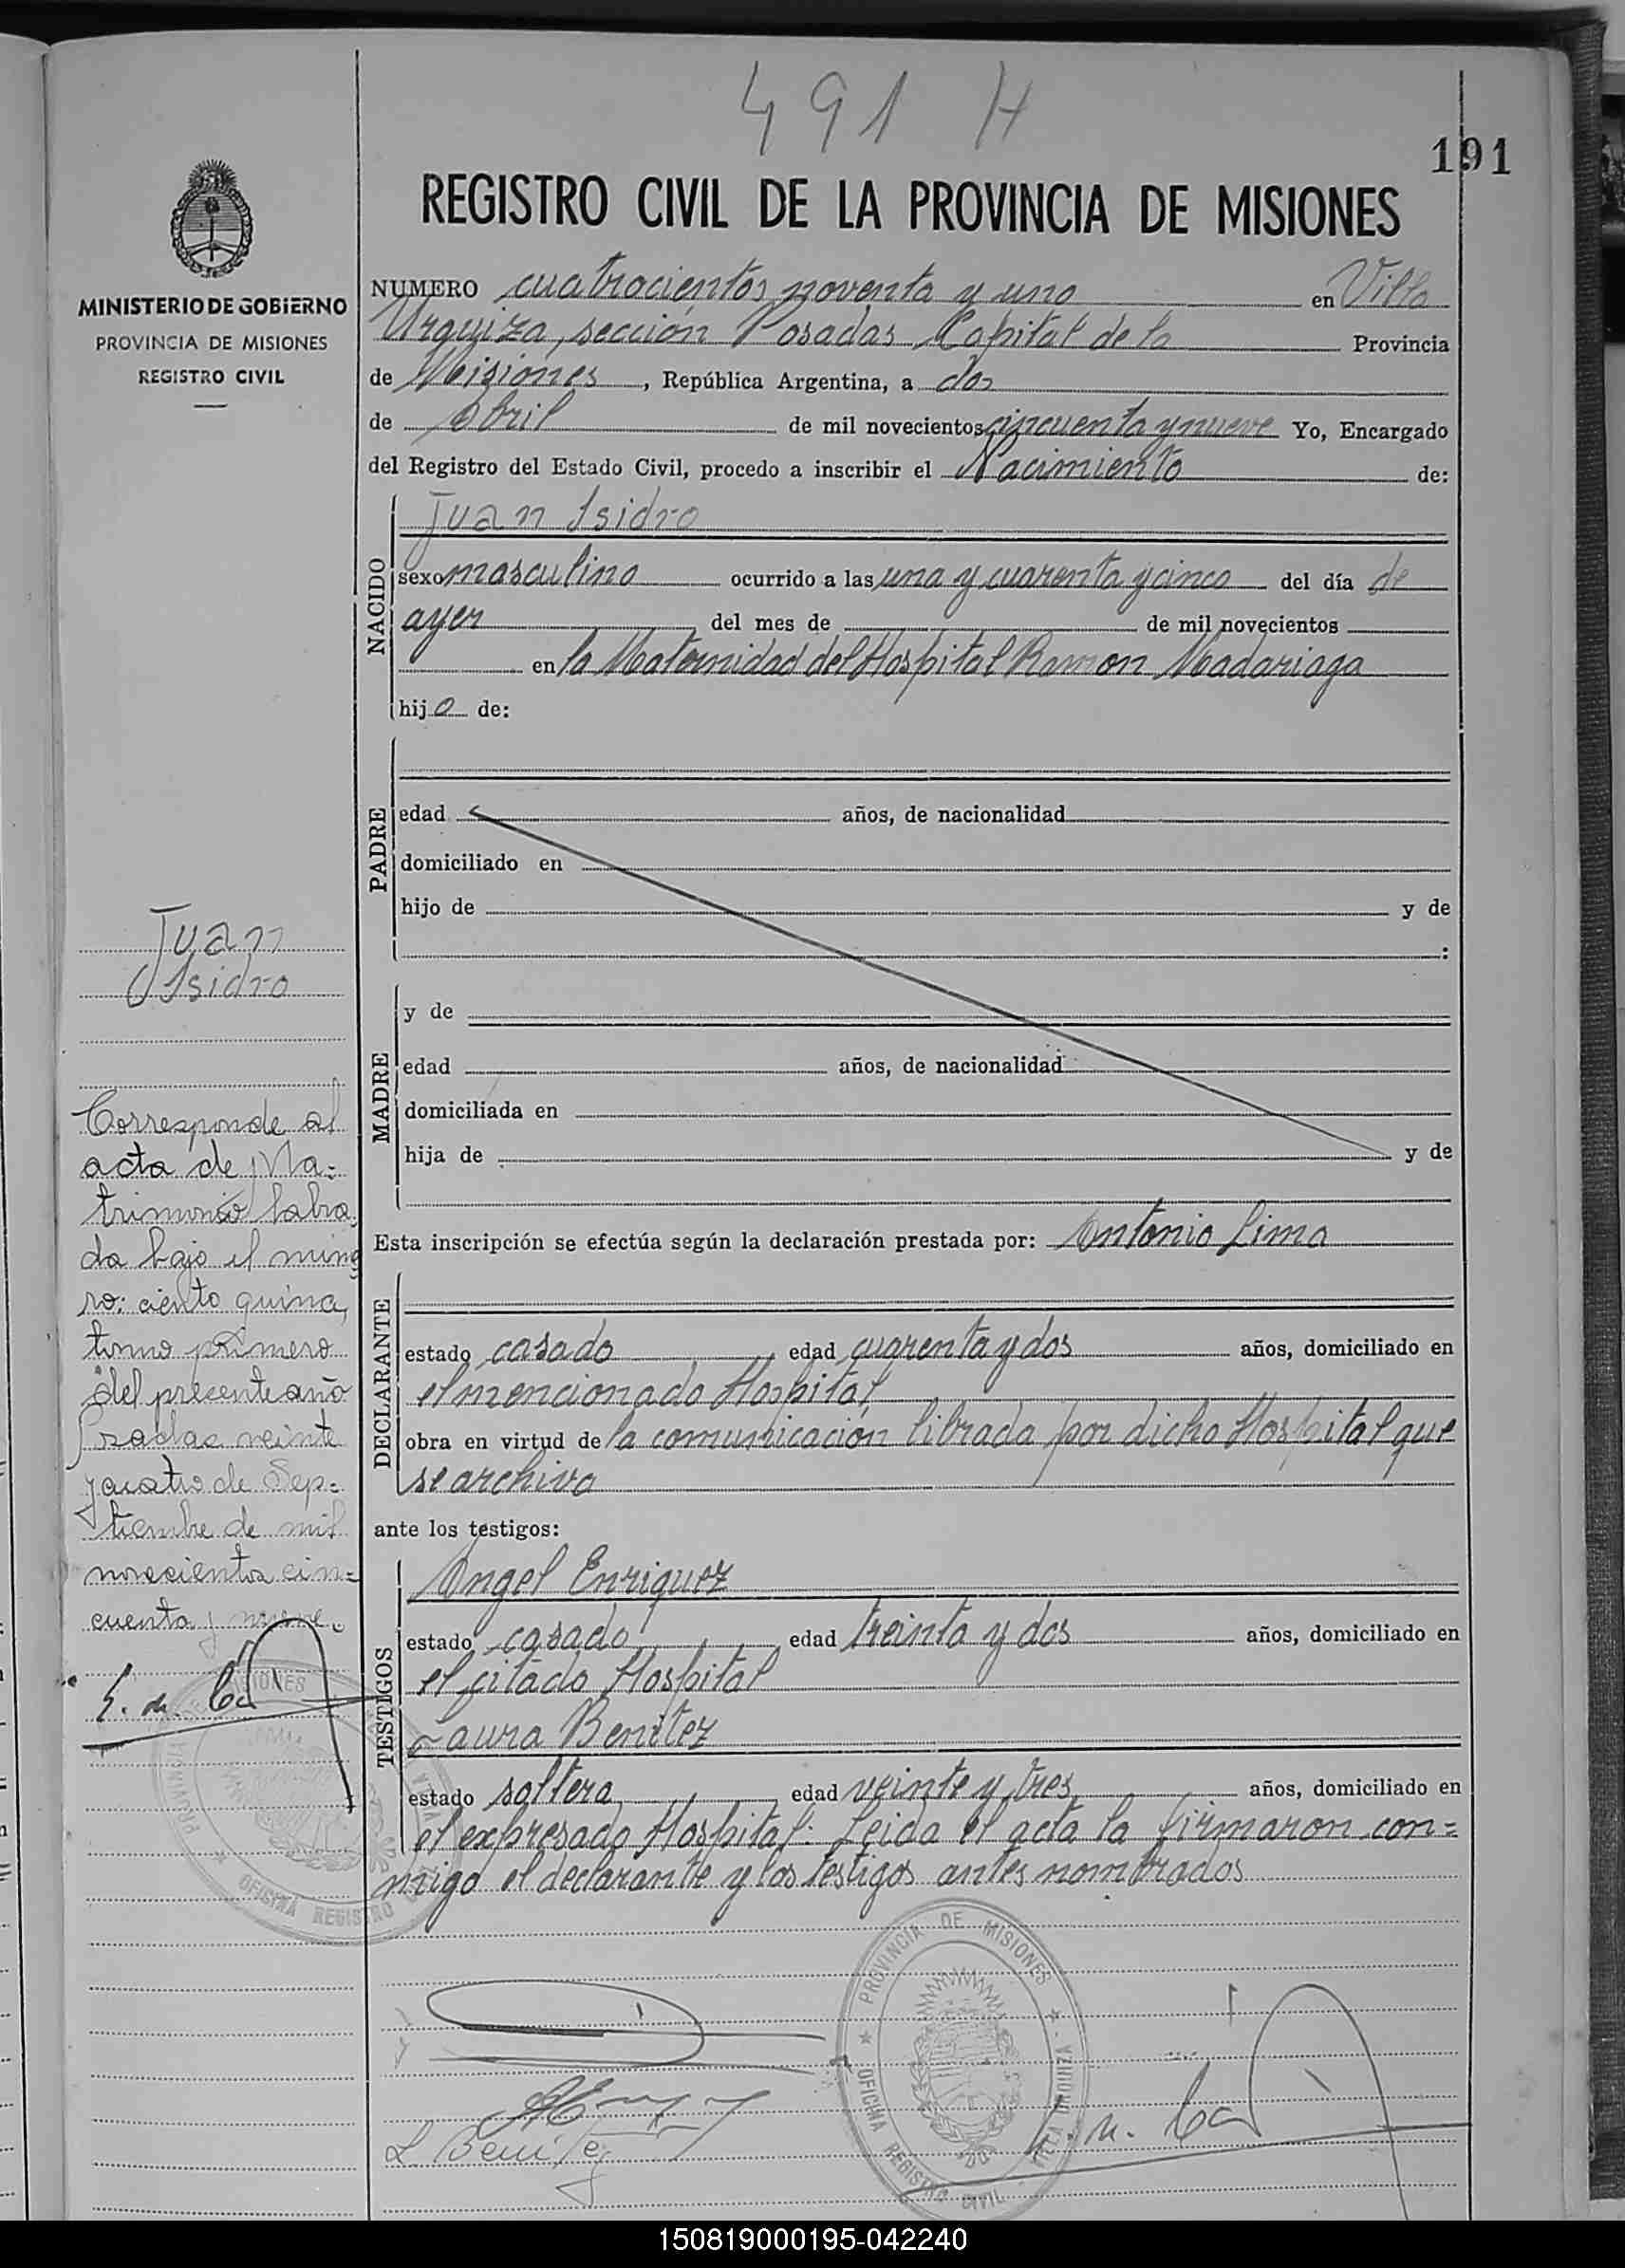 491 H
191
REGISTRO CIVIL DE LA PROVINCIA DE MISIONES
MINISTERIO DE GOBIERNO
PROVINCIA DE MISIONES
REGISTRO CIVIL
NUMERO cuatrocientos noventa y uno en Villa
Urquiza, sección Posadas Capital de la Provincia
de Misiones, República Argentina, a dos
de Abril de mil novecientos cincuenta y nueve Yo, Encargado
del Registro del Estado Civil, procedo a inscribir el Nacimiento de:
NACIDO
Juan Isidro
sexo masculino ocurrido a las una y cuarenta y cinco del día de
ayer del mes de de mil novecientos
en la Maternidad del Hospital Ramon Madariaga
hijo de:
PADRE
edad años, de nacionalidad
domiciliado en
hijo de y de
:
MADRE
y de
edad años, de nacionalidad
domiciliada en
hija de y de
Esta inscripción se efectúa según la declaración prestada por: Antonio Lima
DECLARANTE
estado casado edad cuarenta y dos años, domiciliado en
el mencionado Hospital
obra en virtud de la comunicación librada por dicho Hospital que
se archiva
ante los testigos:
TESTIGOS
Angel Enriquez
estado casado edad treinta y dos años, domiciliado en
el citado Hospital
Laura Benitez
estado soltera edad veinte y tres años, domiciliado en
el expresado Hospital. Leida el acta la firmaron con=
migo el declarante y los testigos antes nombrados
Juan
Isidro
Corresponde al
acta de Ma-
trimonio labra
da bajo el núme
ro: ciento quince,
tomo primero
del presente año
Posadas veinte
y cuatro de Sep=
tiembre de mil
novecientos cin=
cuenta y nueve.
PROVINCIA DE MISIONES
OFICINA REGISTRO CIVIL
VILLA URQUIZA
L Benitez
150819000195-042240